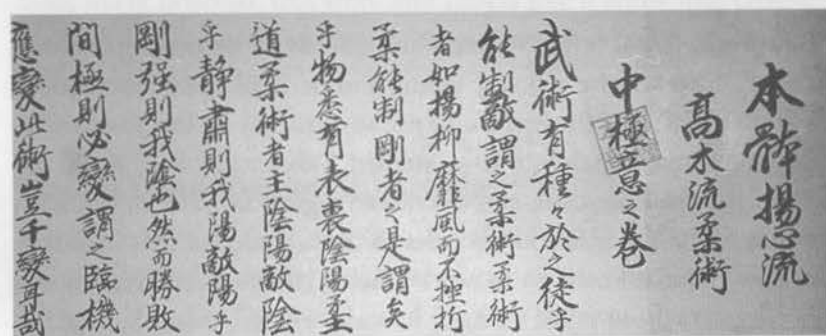 本體揚心流
高木流柔術
中極意之巻
武術有種々於之徒乎
能制敵謂之柔術柔術
者如楊柳靡風而不挫折
柔能制剛者之是謂矣
乎物悉有表裏陰陽柔
道柔術者主陰陽敵陰
乎静肅則我陽敵陽乎
剛强則我陰也然而勝敗
間極則必變謂之臨機
應變此術豈千變耳哉